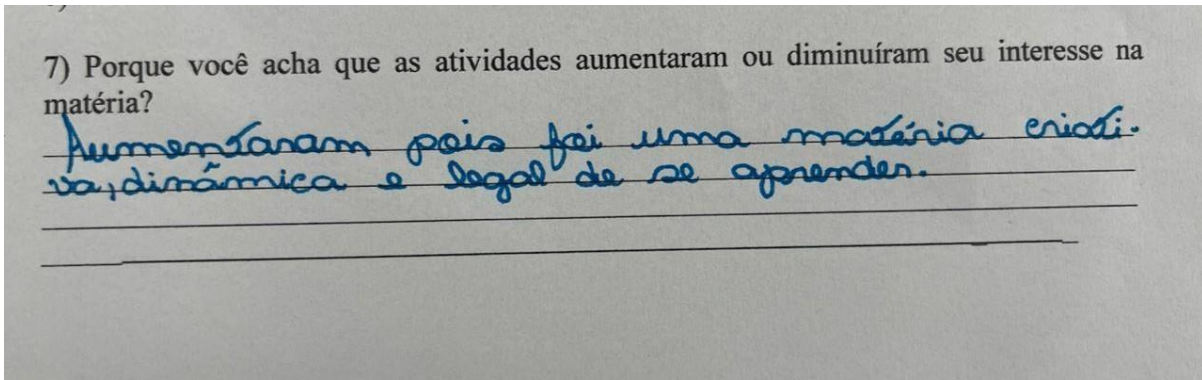 7) Porque você acha que as atividades aumentaram ou diminuíram seu interesse na
matéria?
Aumentaram pois foi uma matéria criati-
va, dinâmica e legal de se aprender.